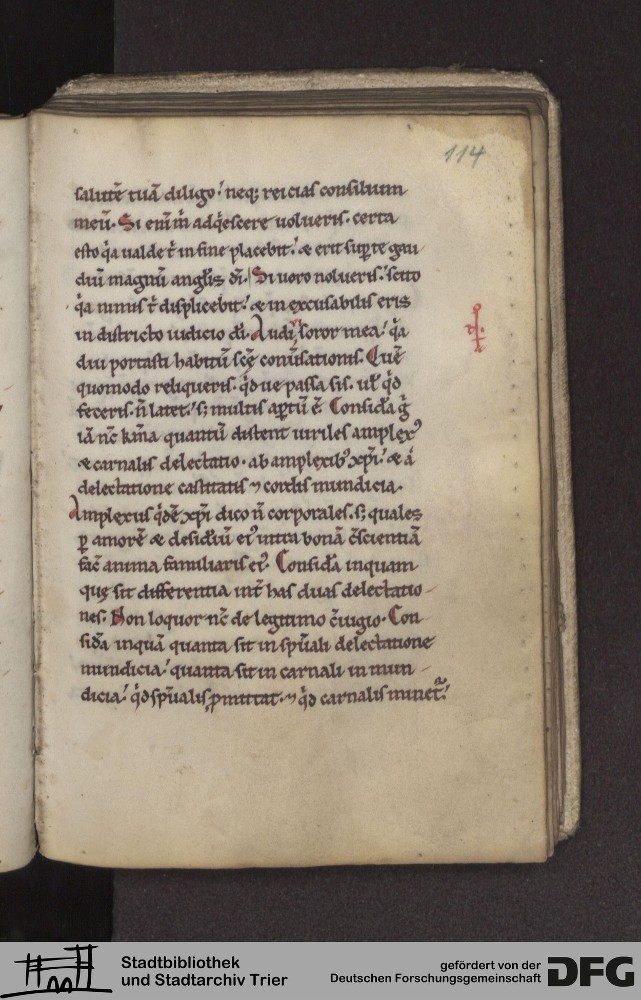 114
salutē tuā diligo! neq; reicias consilium
meū. Si enī m̄ adq̇escere uolueris. certa
esto q̇a ualde t̄ in fine placebit! & erit sup̱ te gau
diū magnū angl̓is dī. Si uero nolueris! scito
q̇a nimis t̄ displicebit! & inexcusabilis eris
in districto iudicio dī. Audi soror mea! q̇a
diu portasti habitū scē conūsationis. Cuē
quomodo reliqueris. q̇d ue passa sis. ul̓ q̇d
feceris. n̄ latet! s; multis ap̱tū ē. Consid̓a ḡ
iā nc̄ km̄a quantū distent uiriles amplexꝰ
& carnalis delectatio. ab amplexibꝰ xp̄i! & a
delectatione castitatis ⁊ cordis mundicia.
Amplexus q̇dē xp̄i dico n̄ corporales. s; quales
p̱ amorē & desid̓iū eiꝰ intra bonā c̄scientiā
fac̄ anima familiaris eiꝰ. Consid̓a inquam
quę sit differentia int̄ has duas delectatio
nes. Non loquor nc̄ de legitimo c̄iugio. Con
sid̓a inquā quanta sit in sp̄uali delectatione
mundicia! quanta sit in carnali inmun
dicia! q̇d sp̄ualis p̱mittat. ⁊ q̇d carnalis minetᷣ!
Stadtbibliothek
und Stadtarchiv Trier
gefördert von der
Deutschen Forschungsgemeinschaft
DFG